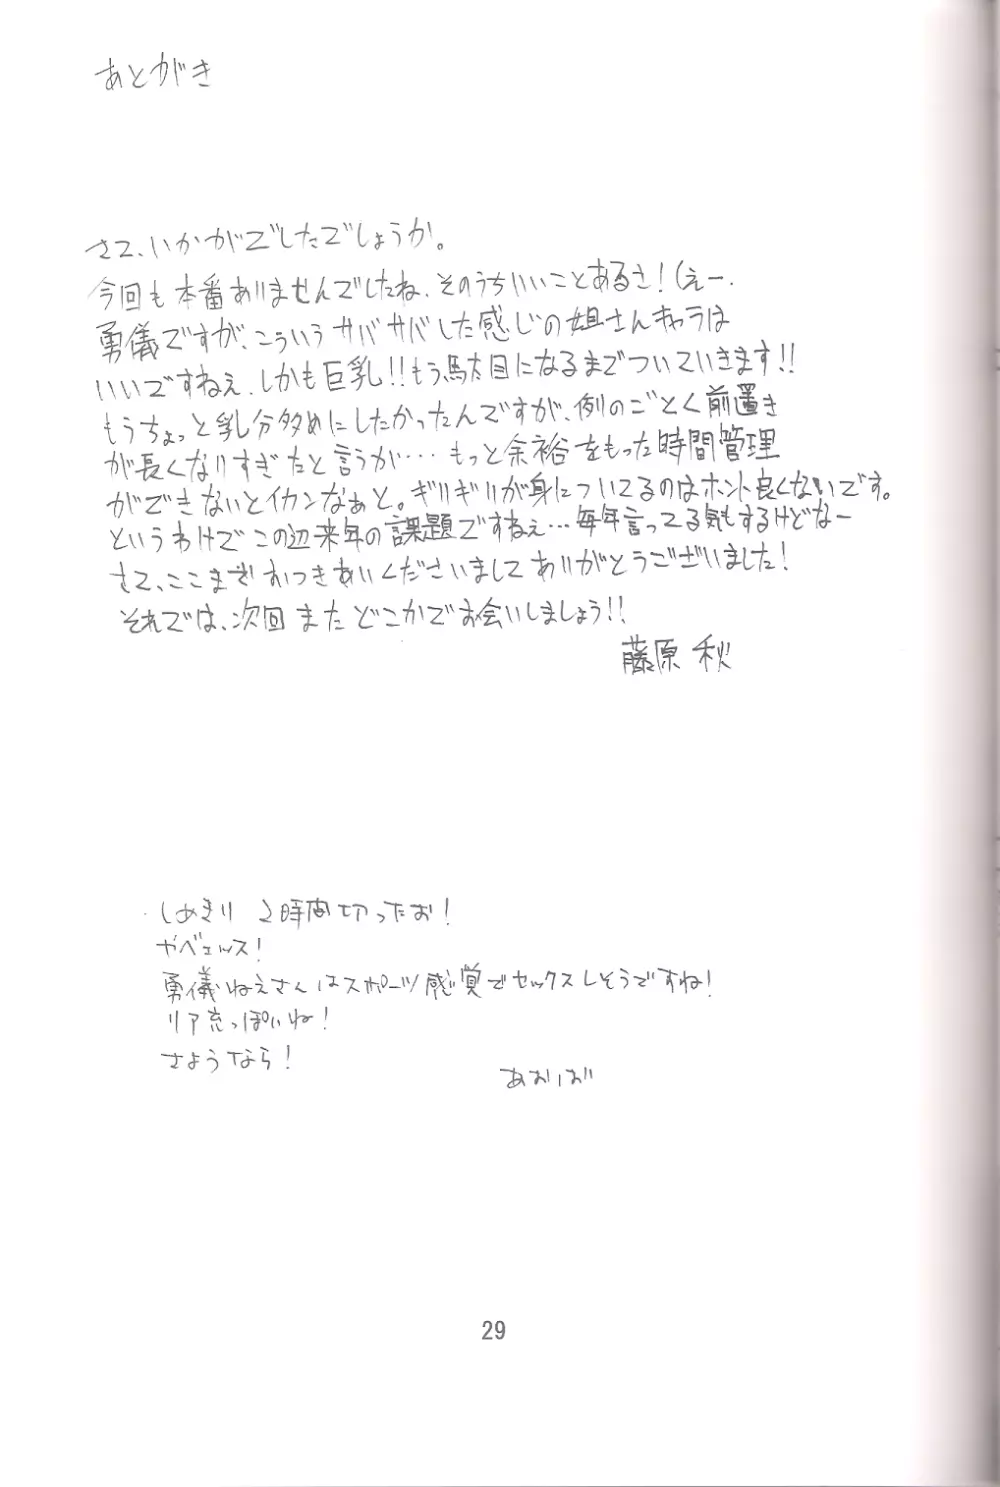 あとがき
さて、いかがでしたでしょうか。
今回も本番ありませんでしたね、そのうちいいことあるさ！(えー.
勇儀ですが、こういうサバサバした感じの姐さんキャラは
いいですねぇ、しかも巨乳!!もう駄目になるまでついていきます!!
もうちょっと乳分多めにしたかったんですが、例のごとく前置き
が長くなりすぎたと言うか…もっと余裕をもった時間管理
ができないとイカンなぁと。ギリギリが身についてるのはホント良くないです。
というわけでこの辺来年の課題ですねぇ…毎年言ってる気もするけどなー
さて、ここまでおつきあいくださいましてありがとうございました！
それでは、次回またどこかでお会いしましょう!!
藤原 秋
しめきり 2時間切ったお！
ヤベェッス！
勇儀ねえさんはスポーツ感覚でセックスしそうですね！
リア充っぽいね！
さようなら！
あおば
29